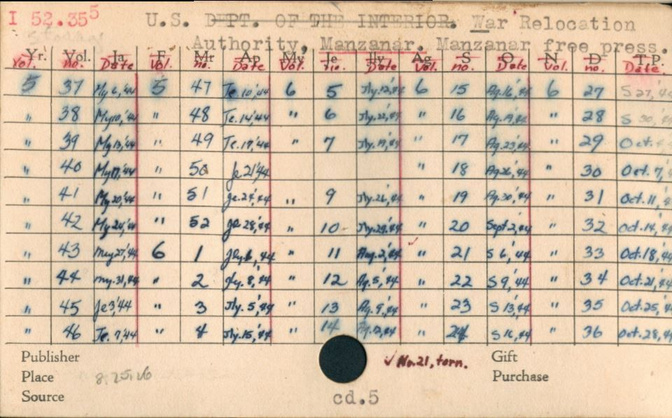 I 52.35⁵ U.S. DEPT. OF THE INTERIOR. War Relocation
Authority, Manzanar. Manzanar free press.
Yr. Vol. Ja F Mr Ap My Je Jy Ag S O N D T.P.
Vol. no. Date Vol. no. Date Vol. no. Date Vol. no. Date Vol. no. Date
5 37 My 6,'44 5 47 Je 10,'44 6 5 Jly.12,'44 6 15 Ag.16,'44 6 27 S 27,'44
" 38 My 10,'44 " 48 Je.14'44 " 6 Jly.22,'44 " 16 Ag.19,'44 " 28 S 30,'44
" 39 My 13,'44 " 49 Je.17,'44 " 7 Jly.19,'44 " 17 Ag.23,'44 " 29 Oct.
" 40 My 17,'44 " 50 Je 21'44 " 18 Ag.26,'44 " 30 Oct.7,
" 41 My 20,'44 " 51 Je.24,'44 " 9 Jly.26,'44 " 19 Ag.30,'44 " 31 Oct.11,
" 42 My 24,'44 " 52 Je 28,'44 " 10 Jly.29,'44 " 20 Sept.2,'44 " 32 Oct.14,
" 43 May 27,'44 6 1 " 11 Aug.2,'44 " 21 S 6,'44 " 33 Oct.18,'44
" 44 my.31,'44 " 2 Jly.8,'44 " 12 Ag.5,'44 " 22 S 9,'44 " 34 Oct.21,'44
" 45 Je 3'44 " 3 Jly.5,'44 " 13 Ag.9,'44 " 23 S 13,'44 " 35 Oct.25,'44
" 46 Je.7,'44 " 4 Jly.15,'44 " 14 Ag.12,'44 " 24 S 16,'44 " 36 Oct.28,'44
Publisher ✓ No.21, torn. Gift
Place Purchase
Source cd.5